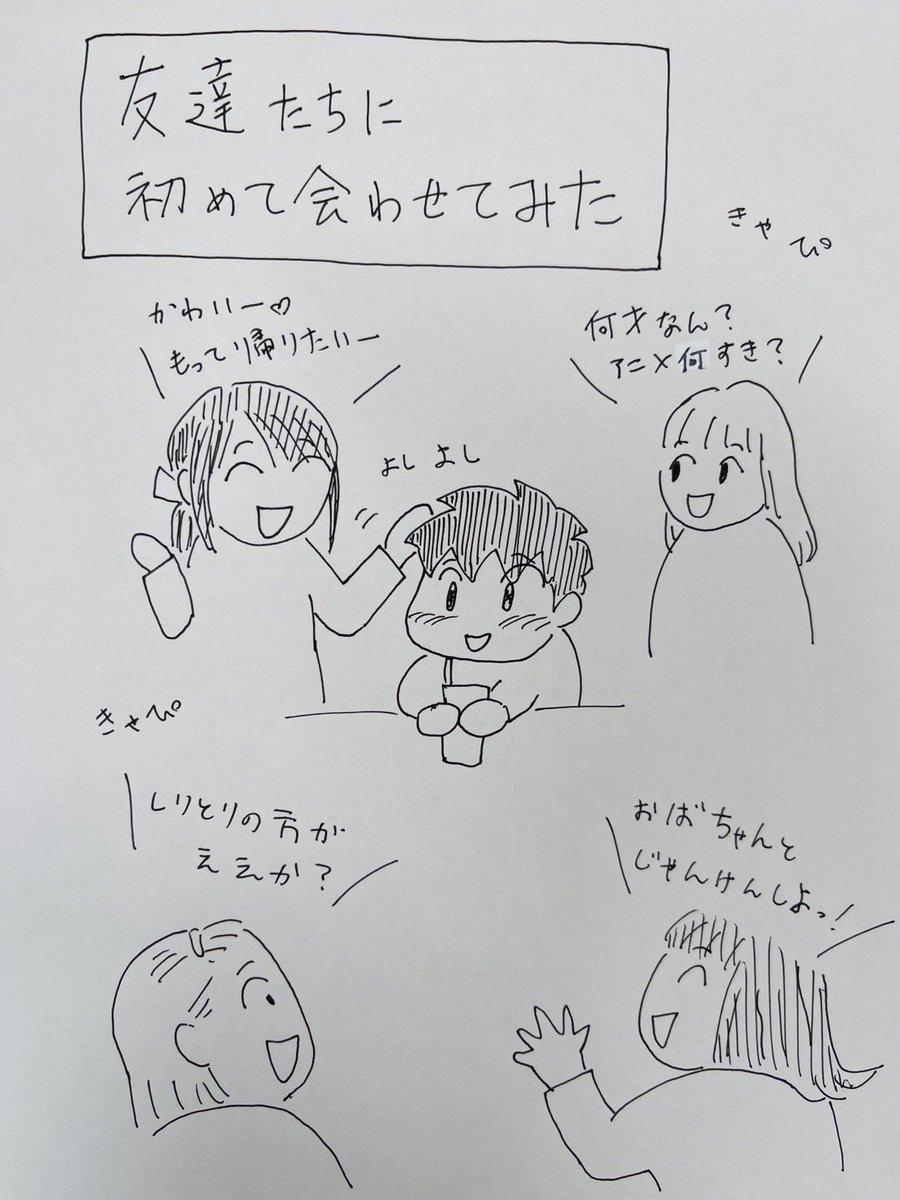 友達たちに
初めて会わせてみた
きゃぴ
かわいー♡
もって帰りたいー
何才なん?
アニメ何すき?
よしよし
きゃぴ
しりとりの方が
ええか?
おばちゃんと
じゃんけんしよっ!